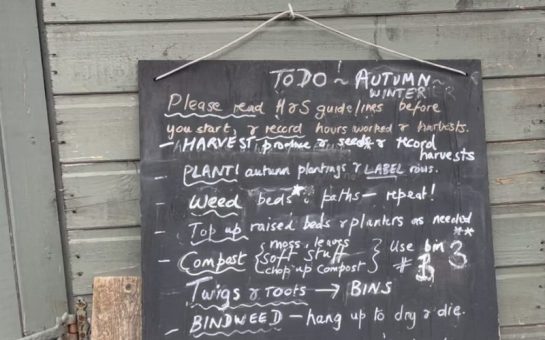 TO DO! ~ AUTUMN ~
WINTER
Please read H&S guidelines before
you start, & record hours worked & harvests.
- HARVEST, produce & seeds & record
harvests
- PLANT! autumn plantings & LABEL rows.
- Weed beds* & paths - repeat!
- Top up raised beds & planters as needed
**
- Compost { moss, leaves } Use bin
{ soft stuff } # 3
{ chop up compost }
Twigs & roots → BINS
- BINDWEED - hang up to dry & die.